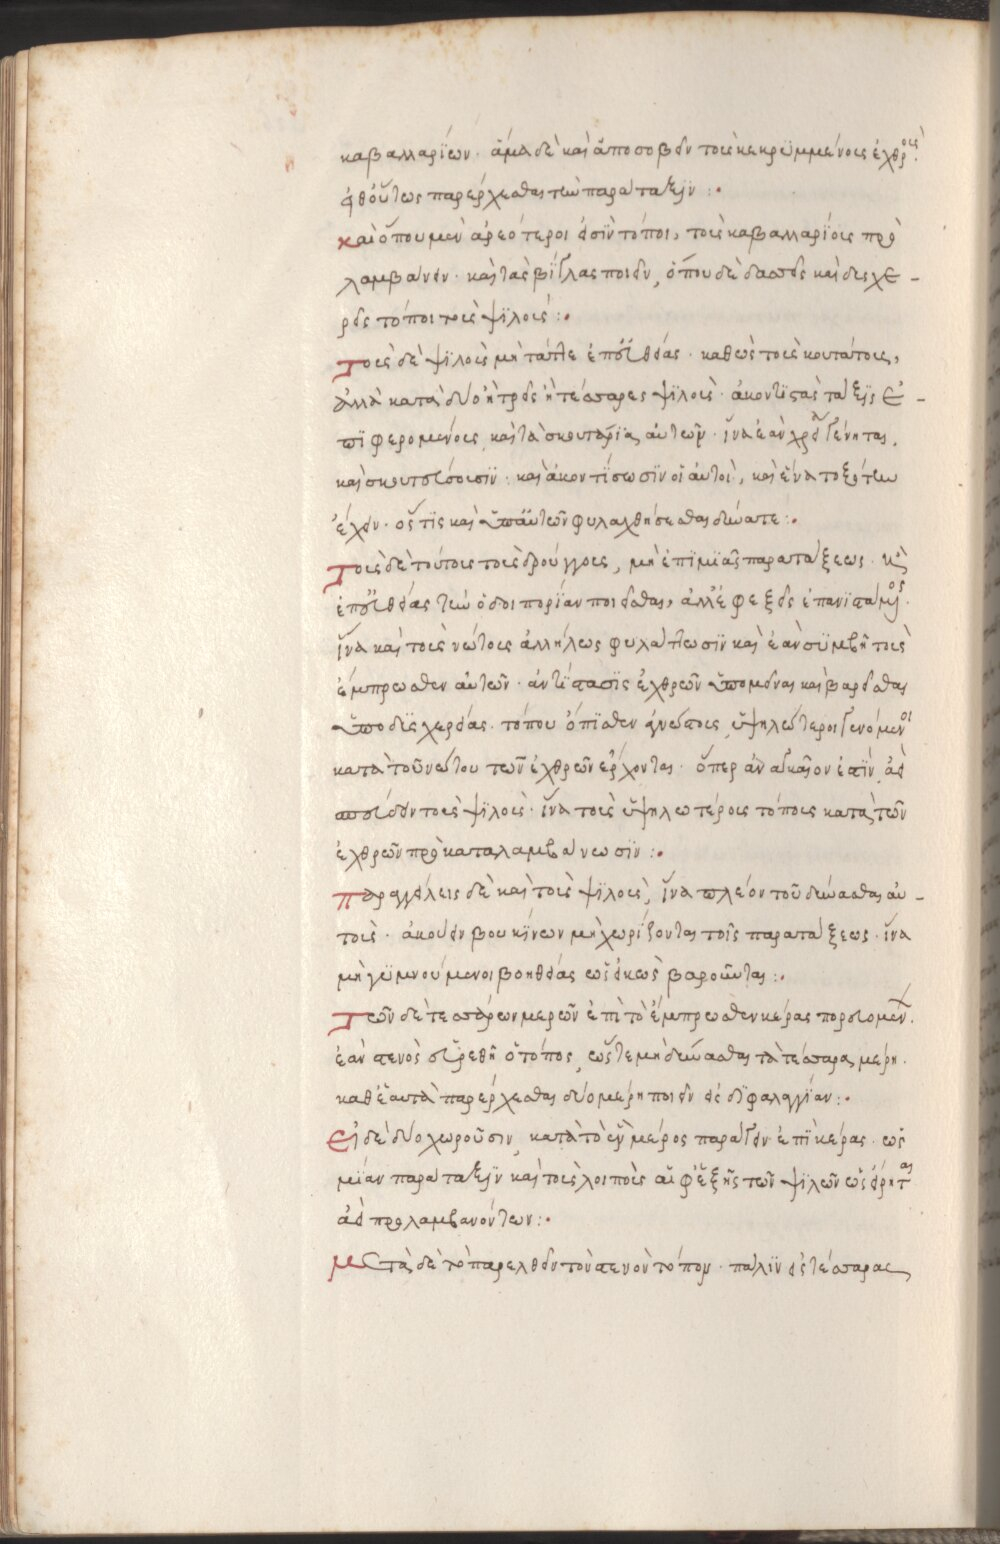 καβαλλαρΐων· ἅμα δὲ καὶ ἀποσοβεῖν τοὺς κεκρϋμμένους ἐχθροὺς
εἶθ οὕτως παρέρχεσθαι τὼ παραταξϊν :·
καὶ ὅπου μὲν ἀρεότεροι εἰσΐν τόποι, τοὺς καβαλλαρίους προ
λαμβάνειν· καὶ τὰς βΐγλας ποιεῖν, ὅπου δὲ δασεῖς καὶ δυσχε-
ρεῖς τόποι τοὺς ψϊλοὺς :·
Τοὺς δὲ ψϊλοὺς μὴ τάττε ἐπ' εὐθείας· καθὼς τοὺς σκουτάτους,
ἀλλὰ κατὰ δύο ἢ τρεῖς ἢ τέσσαρες ψϊλοὺς· ἀκοντϊστὰς τάξεις ἐ-
πϊφερομένους καὶ τὰ σκουτάρϊα αὐτῶν· ἵνα ἐὰν χρεία γένηται,
καὶ σκουτεύσουσϊν· καὶ ἀκοντΐσωσϊν οἱ αὐτοὶ, καὶ ἕνα τοξότην
ἔχειν· ὅς τϊς καὶ ὑπ' αὐτῶν φυλαχθήσεσθαι δύναται :·
Τοὺς δὲ τούτους τοὺς δρούγγους, μὴ ἐπϊ μϊᾶς παρατάξεως· κ
ἐπ' εὐθείας τὼ ὁδοιπορΐαν ποιεῖσθαι, ἀλλ' ἐφεξεῖς ἐπανϊσταμένος·
ἵνα καὶ τοὺς νώτους ἀλλήλως φυλάττωσϊν καὶ ἐὰν σϋμβῇ τοὺς
ἔμπρωσθεν αὐτῶν· ἀντΐστασϊς ἐχθρῶν ὑπομεῖναι καὶ βαρεῖσθαι
ὑπὸ δϋσχερείας· τόπου ὄπϊσθεν ὑψηλώτεροι γενόμενοι
κατὰ τοῦ νώτου τῶν ἐχθρῶν ἔρχονται· ὅπερ ἀναγκαῖον ἐστΐν, ἀεὶ
σπεύδειν τοὺς ψϊλοὺς· ἵνα τοὺς ὑψηλωτέρους τόπους κατὰ τῶν
ἐχθρῶν προκαταλαμβάνωσϊν :·
παραγγέλεις δὲ καὶ τοὺς ψϊλοὺς, ἵνα πλεῖον τοῦ δύνασθαι αὐ-
τοὺς· ἀκούειν βουκΐνων μὴ χωρΐζονται τοῖς παρατάξεως· ἵνα
μὴ γϋμνούμενοι βοηθείας βαροῦνται :·
Τῶν δὲ τεσσάρων μερῶν ἐπὶ τὸ ἔμπρωσθεν κέρας πορευομένων.
ἐὰν στενὸς εὑρεθῇ ὁ τόπος, ὥστε μὴ δύνασθαι τὰ τέσσαρα μέρη.
καθ' ἑαυτὰ παρέρχεσθαι δύο μέρη ποιεῖν εἰς δϊφαλαγγΐαν :·
Εἰ δὲ δύο χωροῦσιν, κατὰ τὸ ἓν μέρος παράγειν· ἐπϊ κέρας· ὡς
μΐαν παραταξϊν καὶ τοὺς λοιποὺς ἐφεξῆς τῶν ψϊλῶν ὡς εἴρηται
ἀεὶ προλαμβανόντων :·
Μετὰ δὲ τὸ παρελθεῖν τὸν στενὸν τόπον· πάλϊν εἰς τέσσαρας